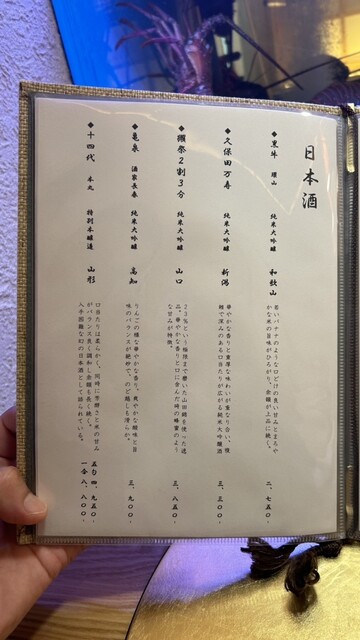 日本酒
◆黒牛 碩山 純米大吟醸 和歌山
若いバナナのような口どけの良い甘みとまろや
かな米の旨味がひろがり、余韻が上品に続く。
二、七五〇-
◆久保田万寿 純米大吟醸 新潟
華やかな香りと重厚な味わいが重なり合い、複
雑で深みのある口当たりが広がる純米大吟醸酒
三、三〇〇-
◆獺祭2割3分 純米大吟醸 山口
23%という極限まで磨いた山田錦を使った逸
品。華やかな香りと口に含んだ時の蜂蜜のよう
な甘みが特徴。
三、八五〇-
◆亀泉 酒家長春 純米大吟醸 高知
りんごの様な華やかな香り。爽やかな酸味と旨
味のバランスが絶妙で、のど越しも滑らか。
三、九〇〇-
◆十四代 本丸 特別本醸造 山形
口当たりは柔らかく、同時に芳醇さと米の甘み
がバランス良く調和し余韻を長く続く。
入手困難な幻の日本酒として語られている。
五勺 四、九五〇-
一合 八、八〇〇-